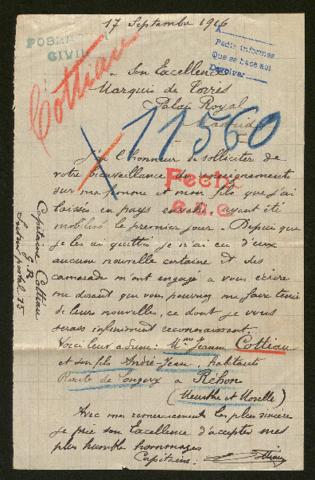 17 Septembre 1916
POBLA
CIVIL
Pedir informes
Que se hace aqui
Devolver
Cottiau
Son Excellence
Marquis de Torres
Palais Royal
Madrid
11560
J'ai l'honneur de solliciter de
votre bienveillance des renseignements
sur ma femme et mon fils que j'ai
laissés en pays envahi, ayant été
mobilisé le premier jour. Depuis que
je les ai quittés je n'ai eu d'eux
aucune nouvelle certaine et des
camarades m'ont engagé à vous écrire
me disant que vous pourriez me faire tenir
de leurs nouvelles, ce dont je vous
serais infiniment reconnaissant.
Fecha
Voici leur adresse: Mme Jeanne Cottiau
et son fils André-Jean, habitants
Route de Longwy à Réhon
(Meurthe et Moselle)
Avec mes remerciements les plus sincères
je prie son Excellence d'accepter mes
plus humbles hommages
Capitaine
Cottiau
Capitaine Cottiau
Secteur postal 75